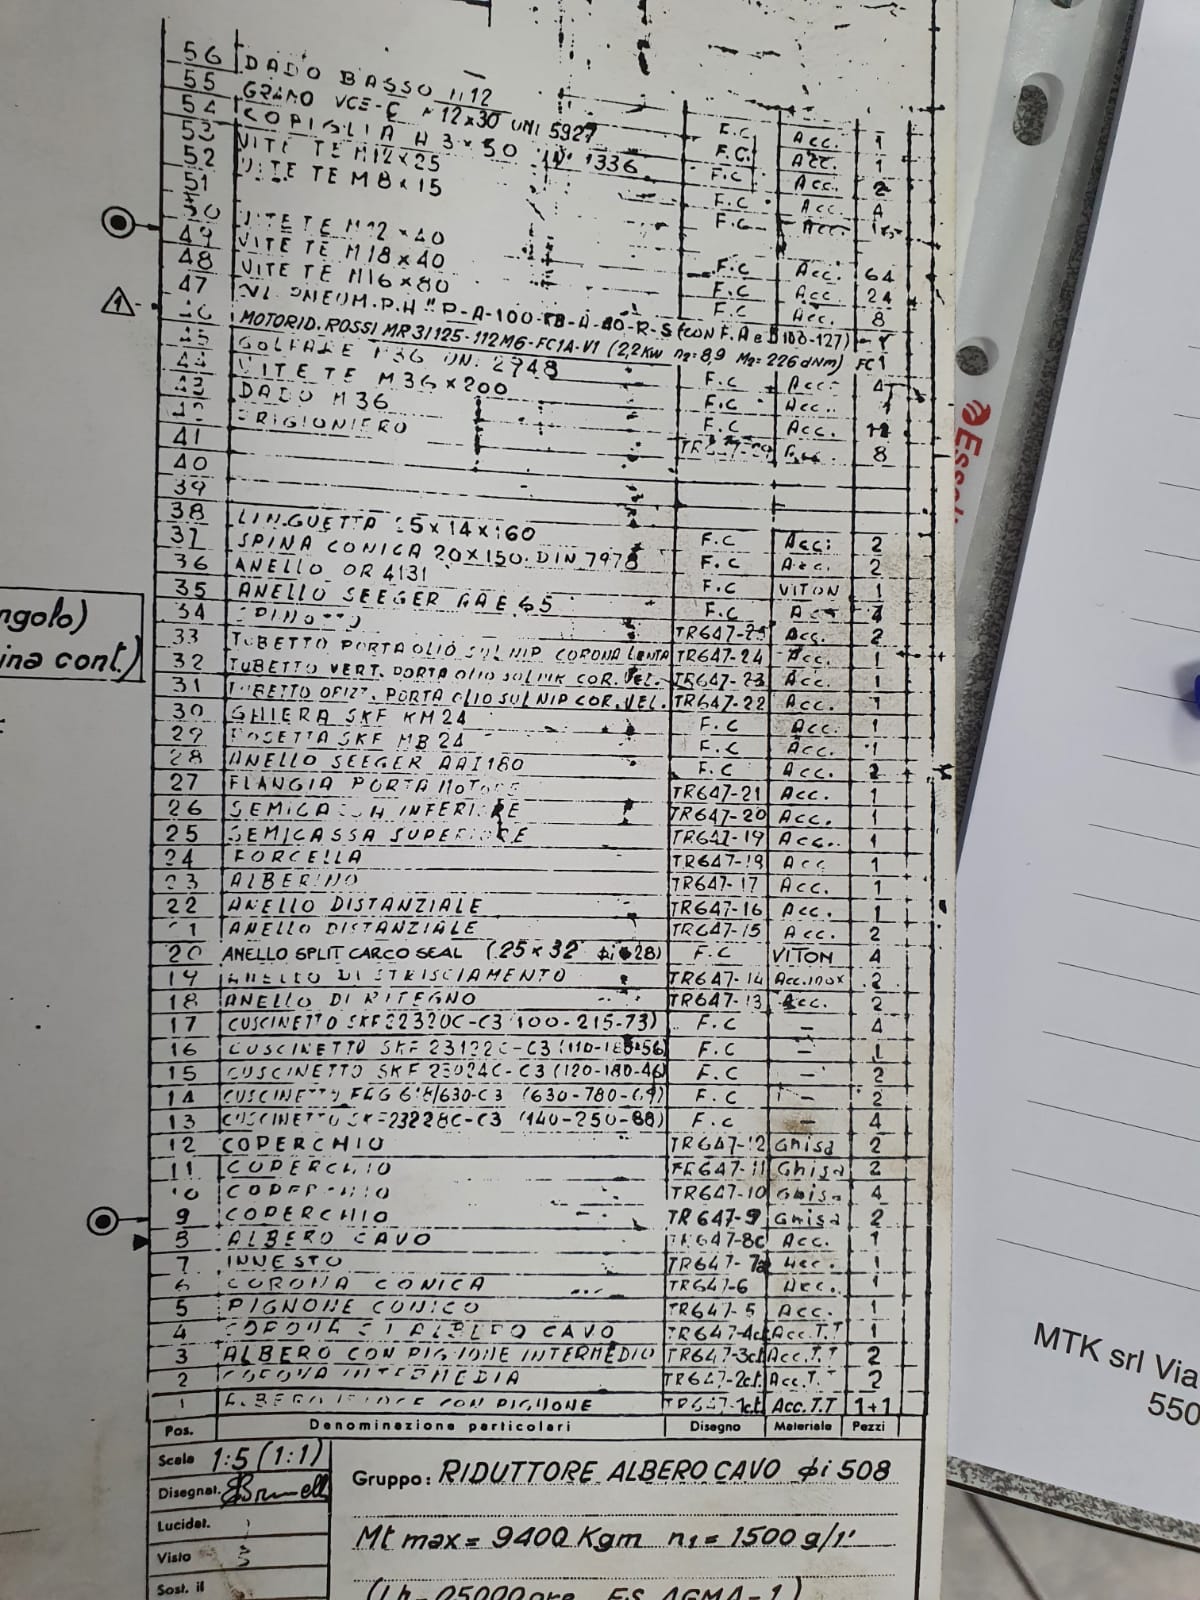 56 DADO BASSO M12 F.C Acc. 1
55 GRANO VCE-C M12x30 UNI 5927 F.C. Acc. 1
54 COPIGLIA A 3x50 UNI 1336 F.C Acc. 2
53 VITE TE M12x25 F.C Acc. 4
52 VITE TE M8x15 F.C Acc.
51
50 VITE TE M12x40 F.C Acc. 64
49 VITE TE M18x40 F.C Acc. 24
48 VITE TE M16x80 F.C Acc. 8
47 PNEUM. P.H "P-A-100 R-S (CON F.A e B 100-127)
46 MOTORID. ROSSI MR3I125-112M6-FC1A-V1 (2,2KW n2=8,9 M2=226dNm) FC 1
45 GOLFARE M36 UNI 2948 F.C Acc. 4
44 VITE TE M36x200 F.C Acc.
43 DADO M36 F.C Acc. 12
42 PRIGIONIERO 8
41
40
39
38 LINGUETTA 25x14x160 F.C Acc. 2
37 SPINA CONICA 20x150 DIN 7978 F.C Acc. 2
36 ANELLO OR 4131 F.C VITON 1
35 ANELLO SEEGER AAE 65 F.C Acc 4
34 SPINOTTO TR647-25 Acc. 2
33 TUBETTO PORTA OLIO SUL NIP CORONA LENTA TR647-24 Acc. 1
32 TUBETTO VERT. PORTA OLIO SUL NIP COR. VEL. TR647-23 Acc. 1
31 TUBETTO ORIZZ. PORTA OLIO SUL NIP COR. VEL. TR647-22 Acc. 1
30 GHIERA SKF KM24 F.C Acc. 1
29 ROSETTA SKF MB 24 F.C Acc. 1
28 ANELLO SEEGER AAI180 F.C Acc. 2
27 FLANGIA PORTA MOTORE TR647-21 Acc. 1
26 SEMICASSA INFERIORE TR647-20 Acc. 1
25 SEMICASSA SUPERIORE TR647-19 Acc. 1
24 FORCELLA TR647-18 Acc 1
23 ALBERINO TR647-17 Acc. 1
22 ANELLO DISTANZIALE TR647-16 Acc. 1
21 ANELLO DISTANZIALE TR647-15 Acc. 2
20 ANELLO SPLIT CARCO SEAL (25x32 ϕi 628) F.C VITON 4
19 ANELLO DI STRISCIAMENTO TR647-14 Acc.inox 2
18 ANELLO DI RITEGNO TR647-13 Acc. 2
17 CUSCINETTO SKF 22320C-C3 (100-215-73) F.C - 4
16 CUSCINETTO SKF 23122C-C3 (110-180-56) F.C - 1
15 CUSCINETTO SKF 23024C-C3 (120-180-46) F.C - 2
14 CUSCINETTO FAG 618/630-C3 (630-780-69) F.C - 2
13 CUSCINETTO SKF 23228C-C3 (140-250-88) F.C - 4
12 COPERCHIO TR647-12 Ghisa 2
11 COPERCHIO TR647-11 Ghisa 2
10 COPERCHIO TR647-10 Ghisa 4
9 COPERCHIO TR647-9 Ghisa 2
8 ALBERO CAVO TR647-8c Acc. 1
7 INNESTO TR647-7a Acc. 1
6 CORONA CONICA TR647-6 Acc. 1
5 PIGNONE CONICO TR647-5 Acc. 1
4 CORONA ALBERO CAVO TR647-4ct Acc.T.T 1
3 ALBERO CON PIGNONE INTERMEDIO TR647-3ct Acc.T.T 2
2 CORONA INTERMEDIA TR647-2ct. Acc.T.T 2
1 ALBERO VELOCE CON PIGNONE TR647-1ct. Acc.T.T 1+1
Pos. Denominazione particolari Disegno Materiale Pezzi
1
ngolo)
ina cont.)
Scala 1:5 (1:1)
Disegnat.
Lucidat.
Visto
Sost. il
Gruppo: RIDUTTORE ALBERO CAVO ϕi 508
Mt max = 9400 Kgm n1 = 1500 g/1'
(Lh=25000 ore F.S. AGMA=1)
Essel
MTK srl Via
550